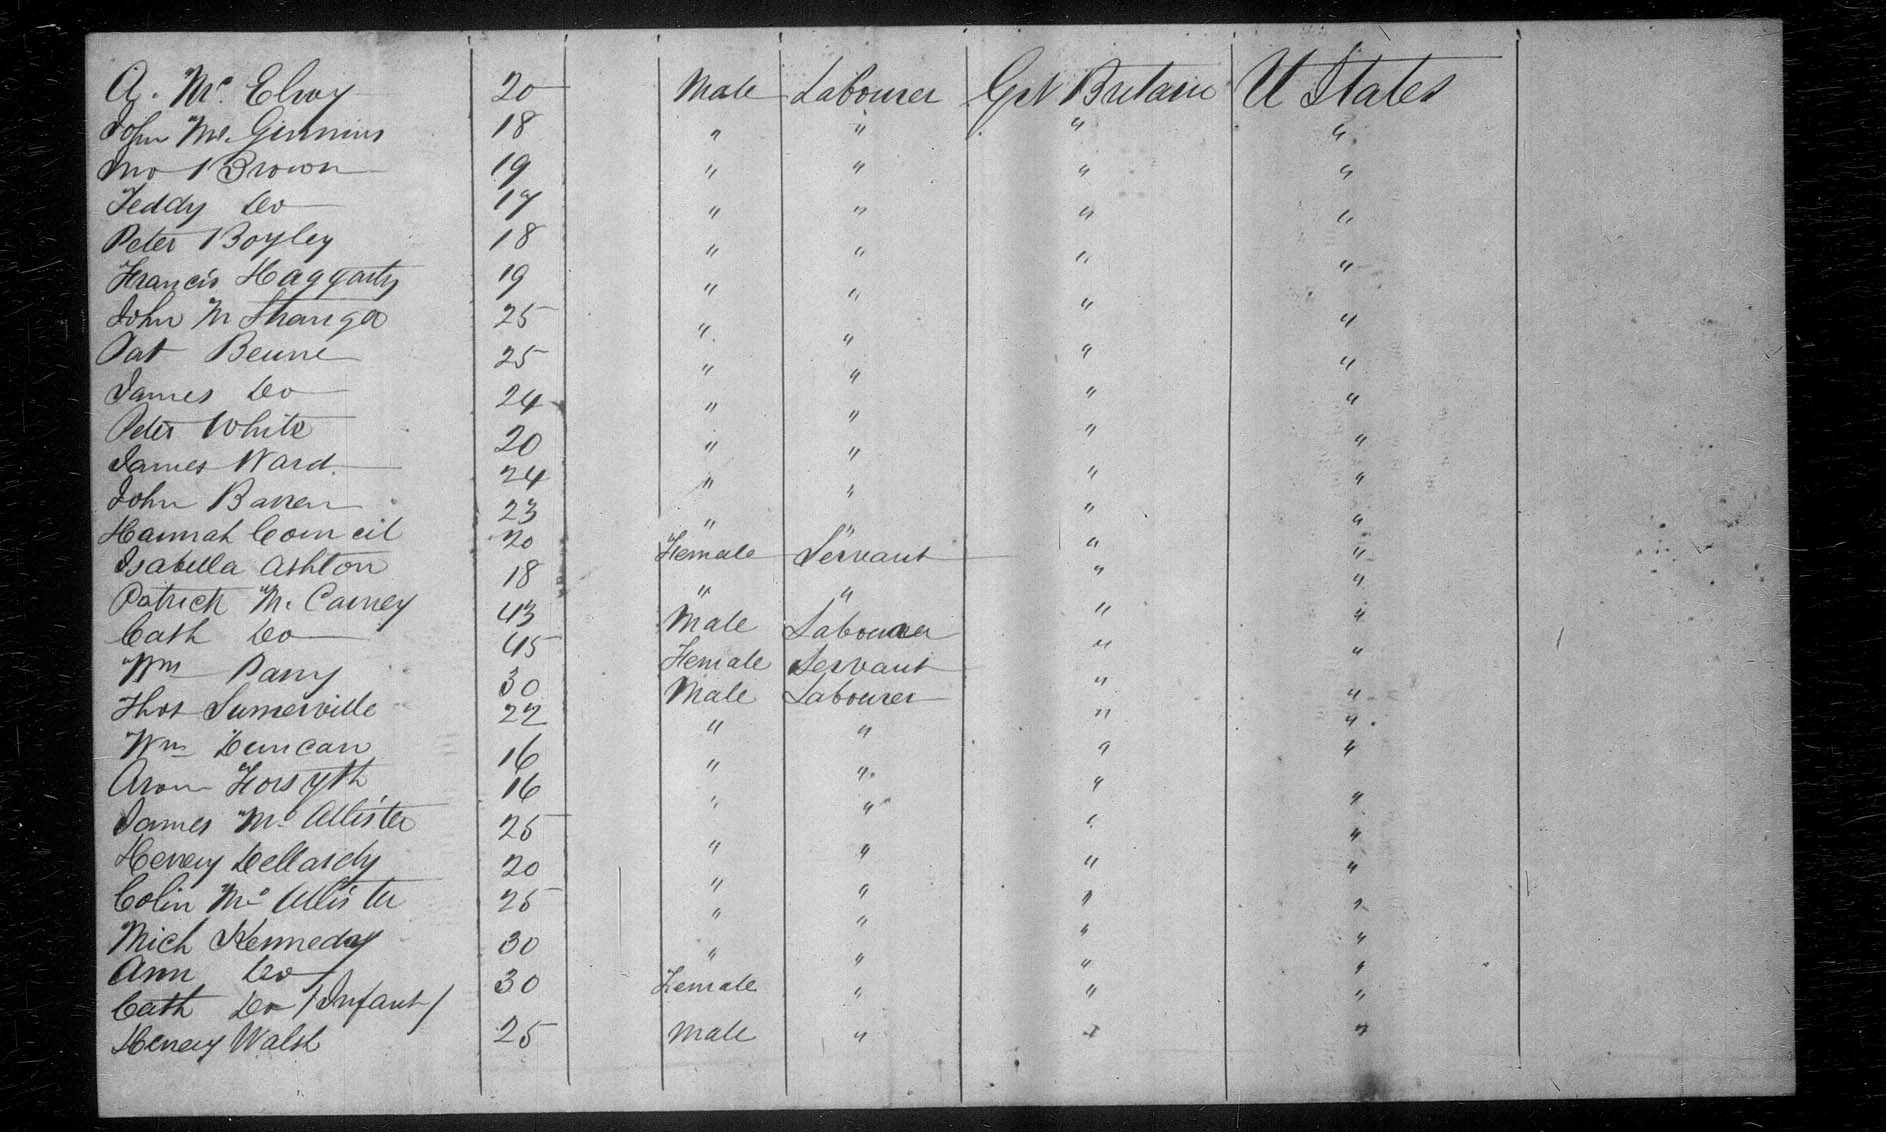 A. Mc. Elroy 20 Male Labourer Grt Britain U States
John Mc. Ginnins 18 " " " "
Jno Brown 19 " " " "
Teddy Do 17 " " " "
Peter Boyley 18 " " " "
Francis Haggarty 19 " " " "
John M 25 " " " "
Pat Beune 25 " " " "
James Do 24 " " " "
Peter White 20 " " " "
James Ward 24 " " " "
John 23 " " " "
Hannah Council 20 Female Servant " "
Isabella Ashton 18 " " " "
Patrick Mc. Carney 43 Male Labourer " "
Cath Do 45 Female Servant " "
Wm Parry 30 Male Labourer " "
Thos Sumerville 22 " " " "
Wm Duncan 16 " " " "
Aron Forsyth 16 " " " "
James Mc Allister 25 " " " "
Henery Dellardy 20 " " " "
Colin Mc Allister 25 " " " "
Mich Kennedy 30 " " " "
Ann Do 30 Female " " "
Cath Do /Infant/ " "
Henery Walsh 25 Male " " "